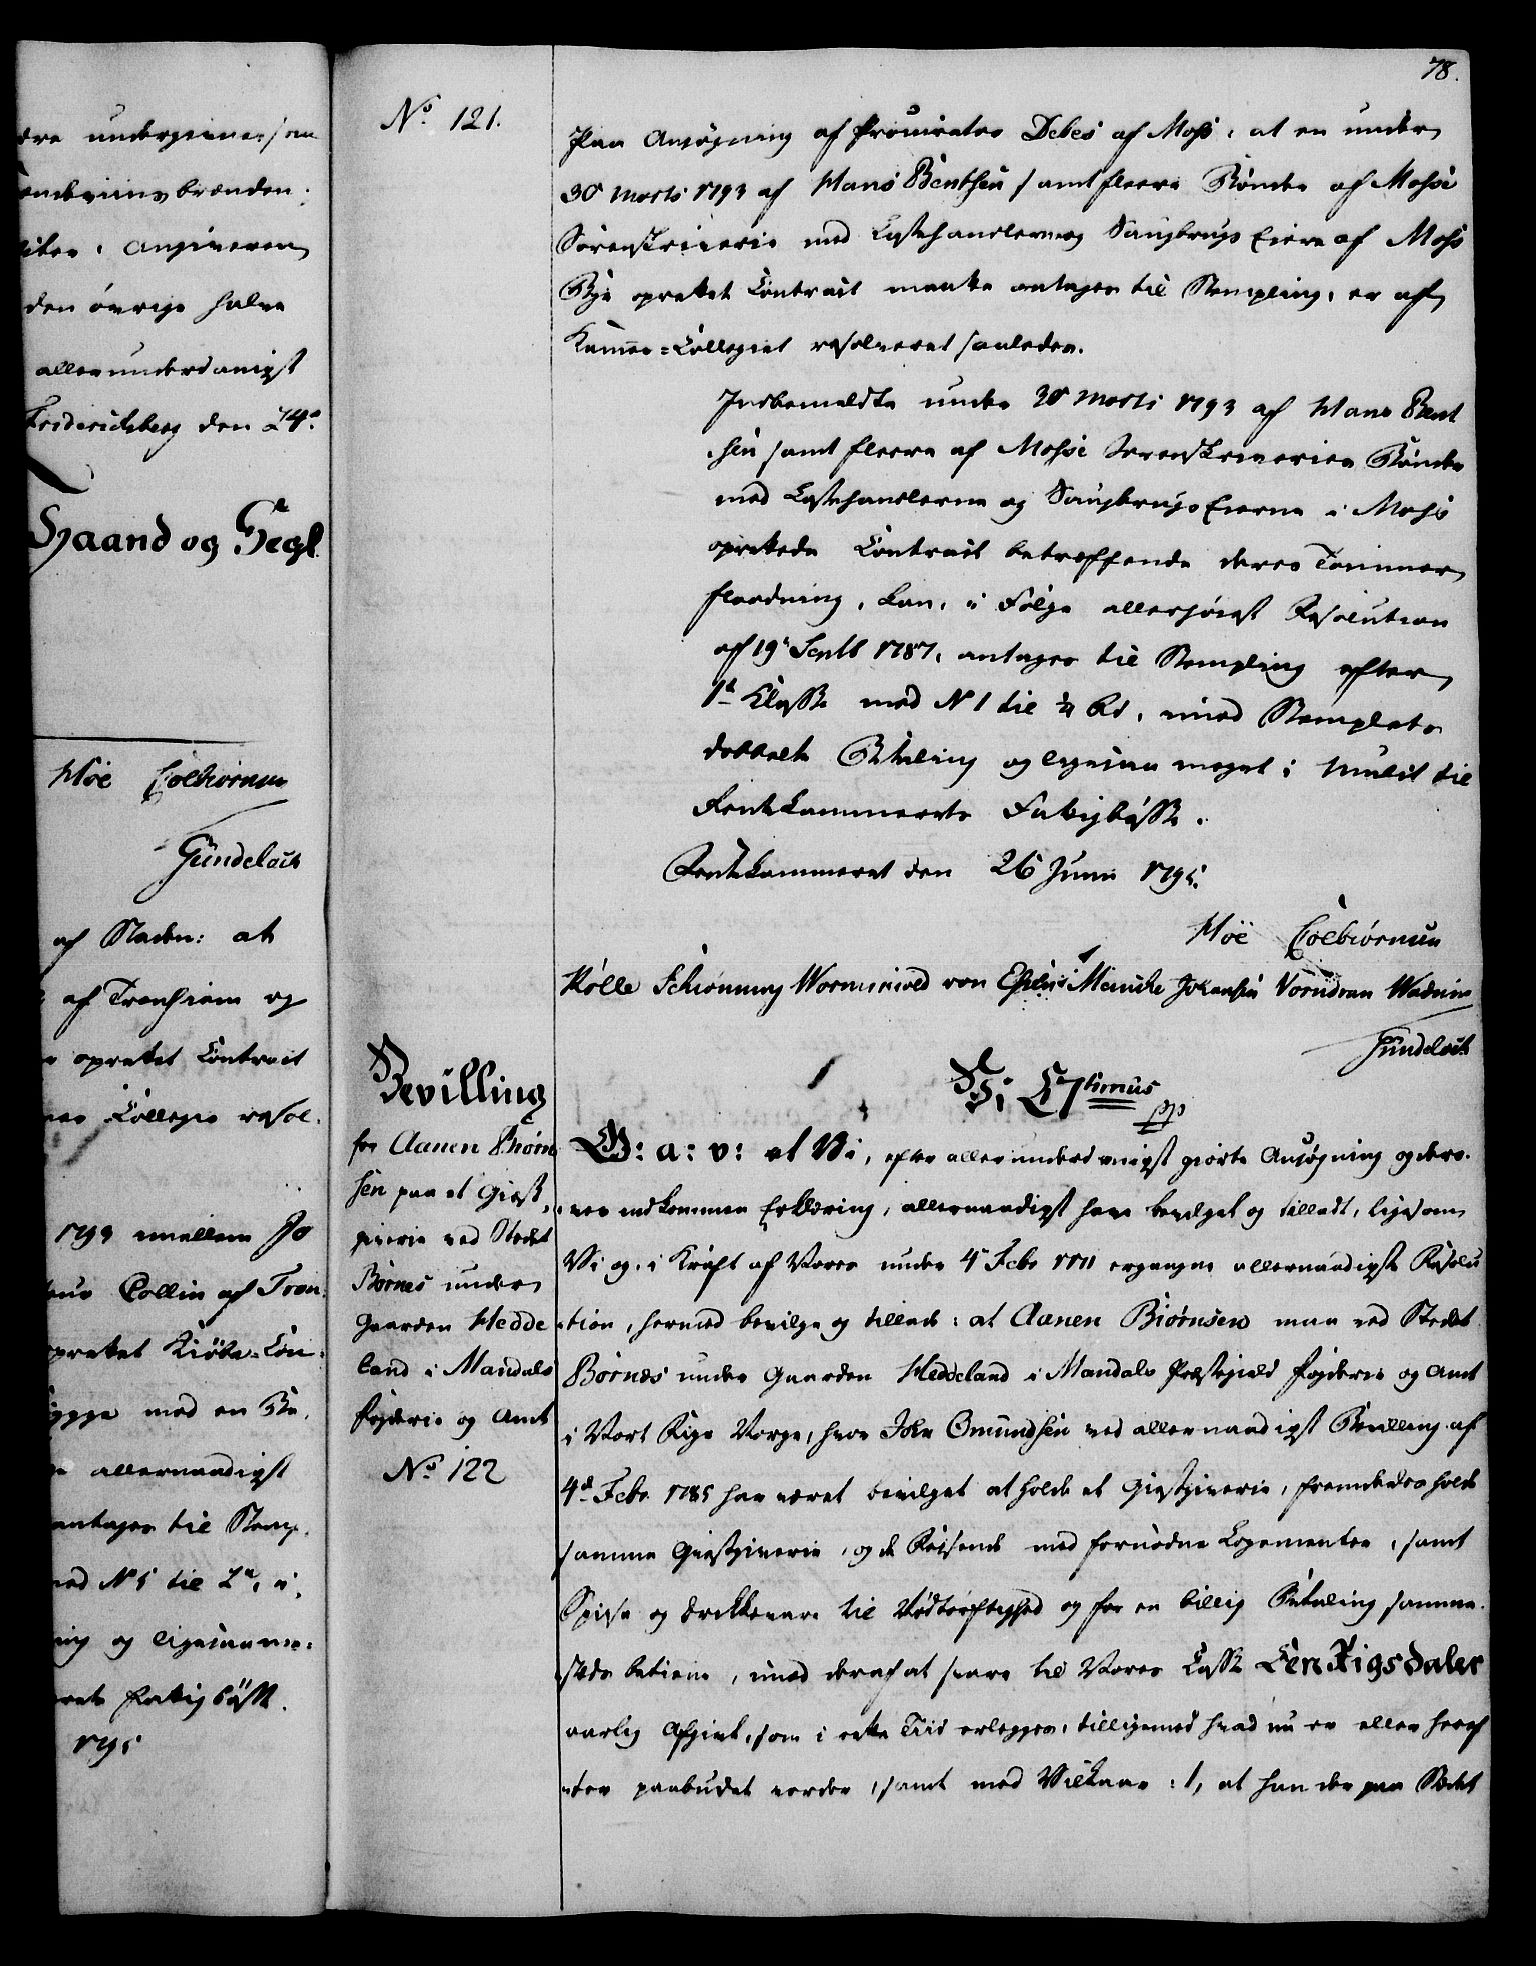 78.
dre undergivne, som
brænden:
Angiveren
den øvrige halve
allerunderdanigst
Friderichsberg den 24de
Haand og Segl.
Höe Colbiørnsen
Gündelach
af Staden: at
af Tronhiem og
oprettet Contract
Collegio resol¬
1793 imellem Jo
Collin af Tron¬
oprettet Kiöbe-Con¬
med en Be¬
allernaadigst
antages til Stemp¬
med N 5 til
og ligesaame¬
Fattigbösse.
1795
No 121.
Paa Ansøgning af Procurator Debes af Moss, at en under
30 Martii 1793 af Hans Benthsen samt fleere Bönder af Mosse
Sorenskriverie med Lasthandlerne og Saugbrugs Eiere af Moss
Bye oprettet Contract maatte antages til Stempling, er af
Kammer-Collegiet resolveret saaledes.
Indbemeldte under 30 Martii 1793 af Hans Bent
hsen samt fleere af Mosse Sorenskriveries Bönder
med Lasthandlerne og Saugbrugs Eierne i Moss
oprettede Contract betreffende deres Tømmer
flødning, kan, i Følge allerhöiest Resolution
af 19 Septb 1787, antages til Stempling efter
1te Classe med N 1 til Rd, imod Stemplets
dobbelt Betaling og ligesaa meget i Mulct til
Rentekammerets Fattigbösse.
Rentekammeret den 26 Junii 1795.
Höe Colbiørnsen
Hölle Schiønning Wormskiold von Essen Meincke Johansen Vorndran Wadum
Gündelach
Bevilling
for Aanen Biörn
sen paa et Giest¬
giverie ved Stedet
Börnes under
Gaarden Hedde
land i Mandals
Fogderie og Amt
No 122
Vi C 7timus
pp
G: a: v: at Vi, efter allerunderdanigst giorte Ansøgning og dero¬
ver indkommen Erklæring, allernaadigst have bevilget og tilladt, ligesom
Vi og, i Kraft af Vores under 4 Febr 1771 ergangne allernaadigste Resolu
tion, hermed bevilge og tillade: at Aanen Biørnsen maa ved Stedet
Börnæs under Gaarden Heddeland i Mandals Præstegield Fogderie og Amt
i Vort Rige Norge, hvor John Omundsen ved allernaadigst Bevilling af
4de Febr 1785 har været bevilget at holde et Giestgiverie, fremdeles holde
samme Giestgiverie, og de Reisende med fornødne Logementer, samt
Spise og Drikkevare til Nødtørftighed og for en billig Betaling samme¬
steds betiene, imod deraf at svare til Vores Casse Een Rigsdaler
aarlig Afgivt, som i rette Tiid erlegges, tilligemed hvad nu er eller heref
ter paabudet vorder, samt med Vilkaar: 1, at han der paa Stedet